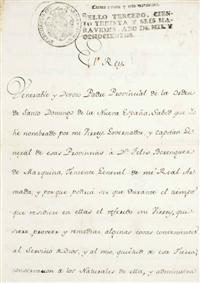 SELLO TERCERO, CIEN-
TO TREINTA Y SEIS MA-
RAVEDIS, AÑO DE MIL Y
OCHOCIENTOS.
El Rey.
Venerable y Devoto Padre Provincial de la Orden
de Santo Domingo de la Nueva España, Sabed que Yo
he nombrado por mi Virrey Governador, y Capitan Ge-
neral de esas Provincias à Dn. Felix Berenguer
de Marquina, Teniente General de mi Real Ar-
mada, y porque podrá ser que durante el tiempo
que residiere en ellas el referido mi Virrey, qui-
era proveer y remediar algunas cosas convenientes
al Servicio de Dios, y al mio, quietud de esa Tierra,
conservacion de los Naturales de ella, y administra-